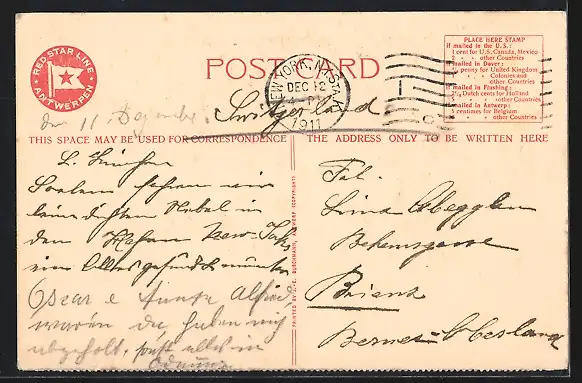 RED STAR LINE
ANTWERPEN
POST CARD
NEW YORK, N.Y. STA.
DEC 12
4 - PM
1911
PLACE HERE STAMP
If mailed in the U.S.:
1 cent for U.S. Canada, Mexico
2 " " other Countries
If mailed in Dover:
½ penny for United Kingdom
" " Colonies and
other Countries
If mailed in Flushing:
2½ Dutch cents for Holland
5 " " " other Countries
If mailed in Antwerp:
5 centimes for Belgium
" " other Countries
den 11 Dezember.
Switzerland
THIS SPACE MAY BE USED FOR CORRESPONDENCE
THE ADDRESS ONLY TO BE WRITTEN HERE
L.
Soeben fahren wir
dichten Nebel in
den Hafen New-York
ein Alles gesund u. munter
Oscar e Alfred
waren da haben mich
abgeholt, sonst alles in
Ordnung
Frl.
Lina Abegglen
Brienz
Berner-Oberland